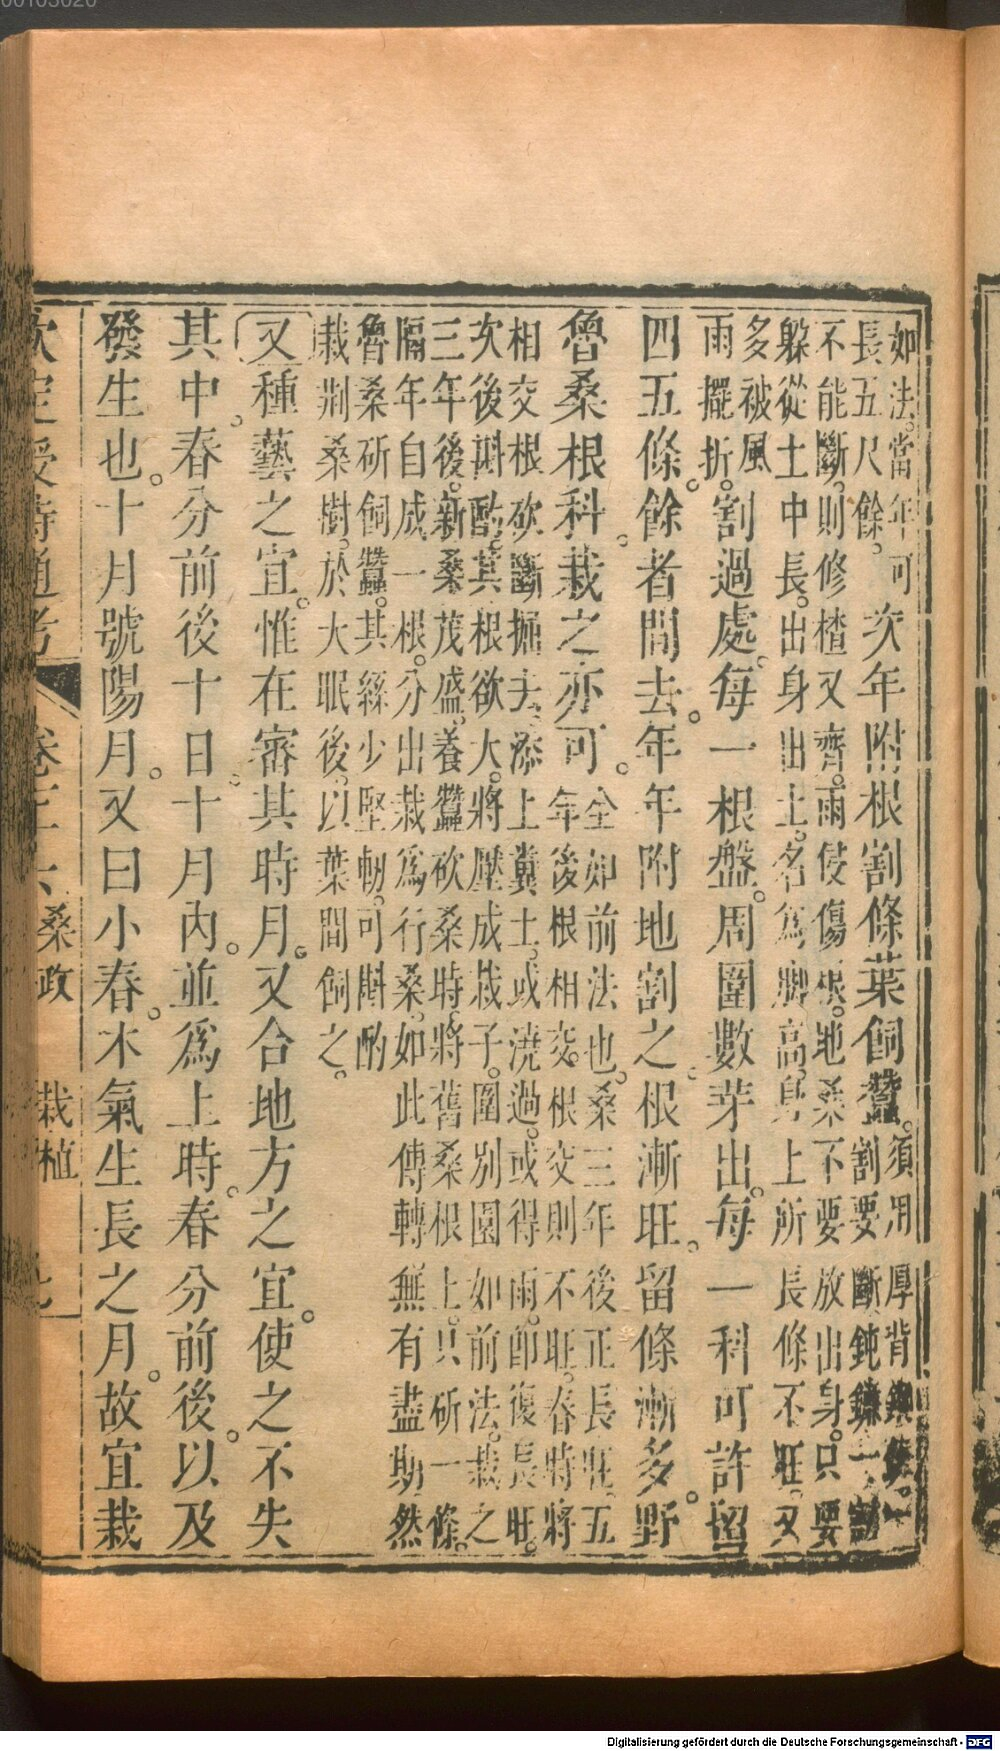 如法。當年可
長五尺餘。
次年附根割條葉飼蠶。
須用厚背
割要斷鈍鐮一割
不能斷。則修楂又齊。雨侵傷根。地桑不要放出身。只要
躲從土中長。出身出土。名爲脚高。身上所長條不旺。又
多被風
雨擺折。
割過處。每一根盤。周圍數芽出。每一科可許留
四五條。餘者間去。年年附地割之。根漸旺。留條漸多。野
魯桑根科。栽之亦可。
全如前法也。桑三年後正長旺。五
年後根相交。根交則不旺。春時將
相交根砍斷掘去。添上糞土。或澆過。或得雨。卽復長旺。
次後斟酌。其根欲大。將壓成栽子。圍別園如前法。栽之
三年後。新桑茂盛。養蠶砍桑時。將舊桑根上。只斫一條。
隔年自成一根。分出栽爲行桑。如此傳轉無有盡期。然
魯桑斫飼蠶。其絲少堅韌。可斟酌
栽荆桑樹。於大眠後。以葉間飼之。
又種藝之宜。惟在審其時月。又合地方之宜。使之不失
其中。春分前後十日。十月內。並爲上時。春分前後。以及
發生也。十月號陽月。又曰小春。木氣生長之月。故宜栽
欽定授時通考 卷七十六 桑政 栽植 七
Digitalisierung gefördert durch die Deutsche Forschungsgemeinschaft - DFG